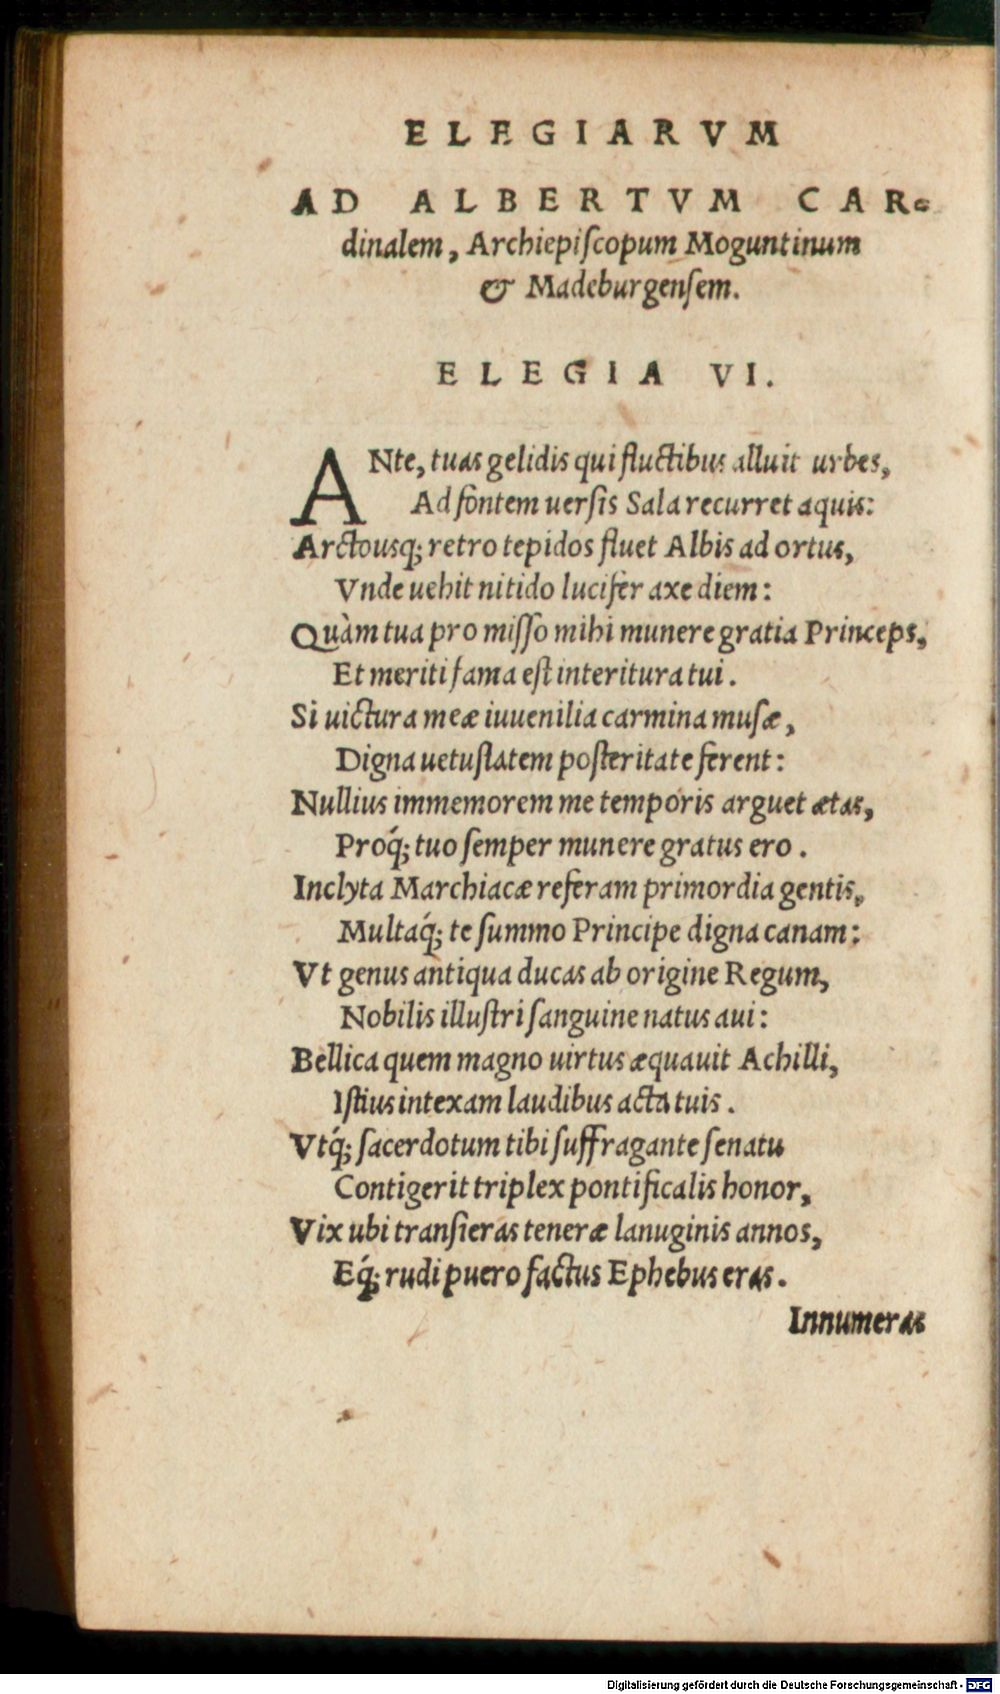 ELEGIARVM
AD ALBERTVM CAR-
dinalem, Archiepiſcopum Moguntinum
& Madeburgenſem.
ELEGIA VI.
ANte, tuas gelidis qui fluctibus alluit urbes,
Ad fontem uerſis Sala recurret aquis:
Arctousq; retro tepidos fluet Albis ad ortus,
Vnde uehit nitido lucifer axe diem:
Quàm tua pro miſſo mihi munere gratia Princeps,
Et meriti fama eſt interitura tui.
Si uictura meæ iuuenilia carmina muſæ,
Digna uetuſtatem poſteritate ferent:
Nullius immemorem me temporis arguet ætas,
Proq́; tuo ſemper munere gratus ero.
Inclyta Marchiacæ referam primordia gentis,
Multaq́; te ſummo Principe digna canam:
Vt genus antiqua ducas ab origine Regum,
Nobilis illuſtri ſanguine natus aui:
Bellica quem magno uirtus æquauit Achilli,
Iſtius intexam laudibus acta tuis.
Vtq́; ſacerdotum tibi ſuffragante ſenatu
Contigerit triplex pontificalis honor,
Vix ubi tranſieras teneræ lanuginis annos,
Eq́; rudi puero factus Ephebus eras.
Innumeras
Digitalisierung gefördert durch die Deutsche Forschungsgemeinschaft - DFG